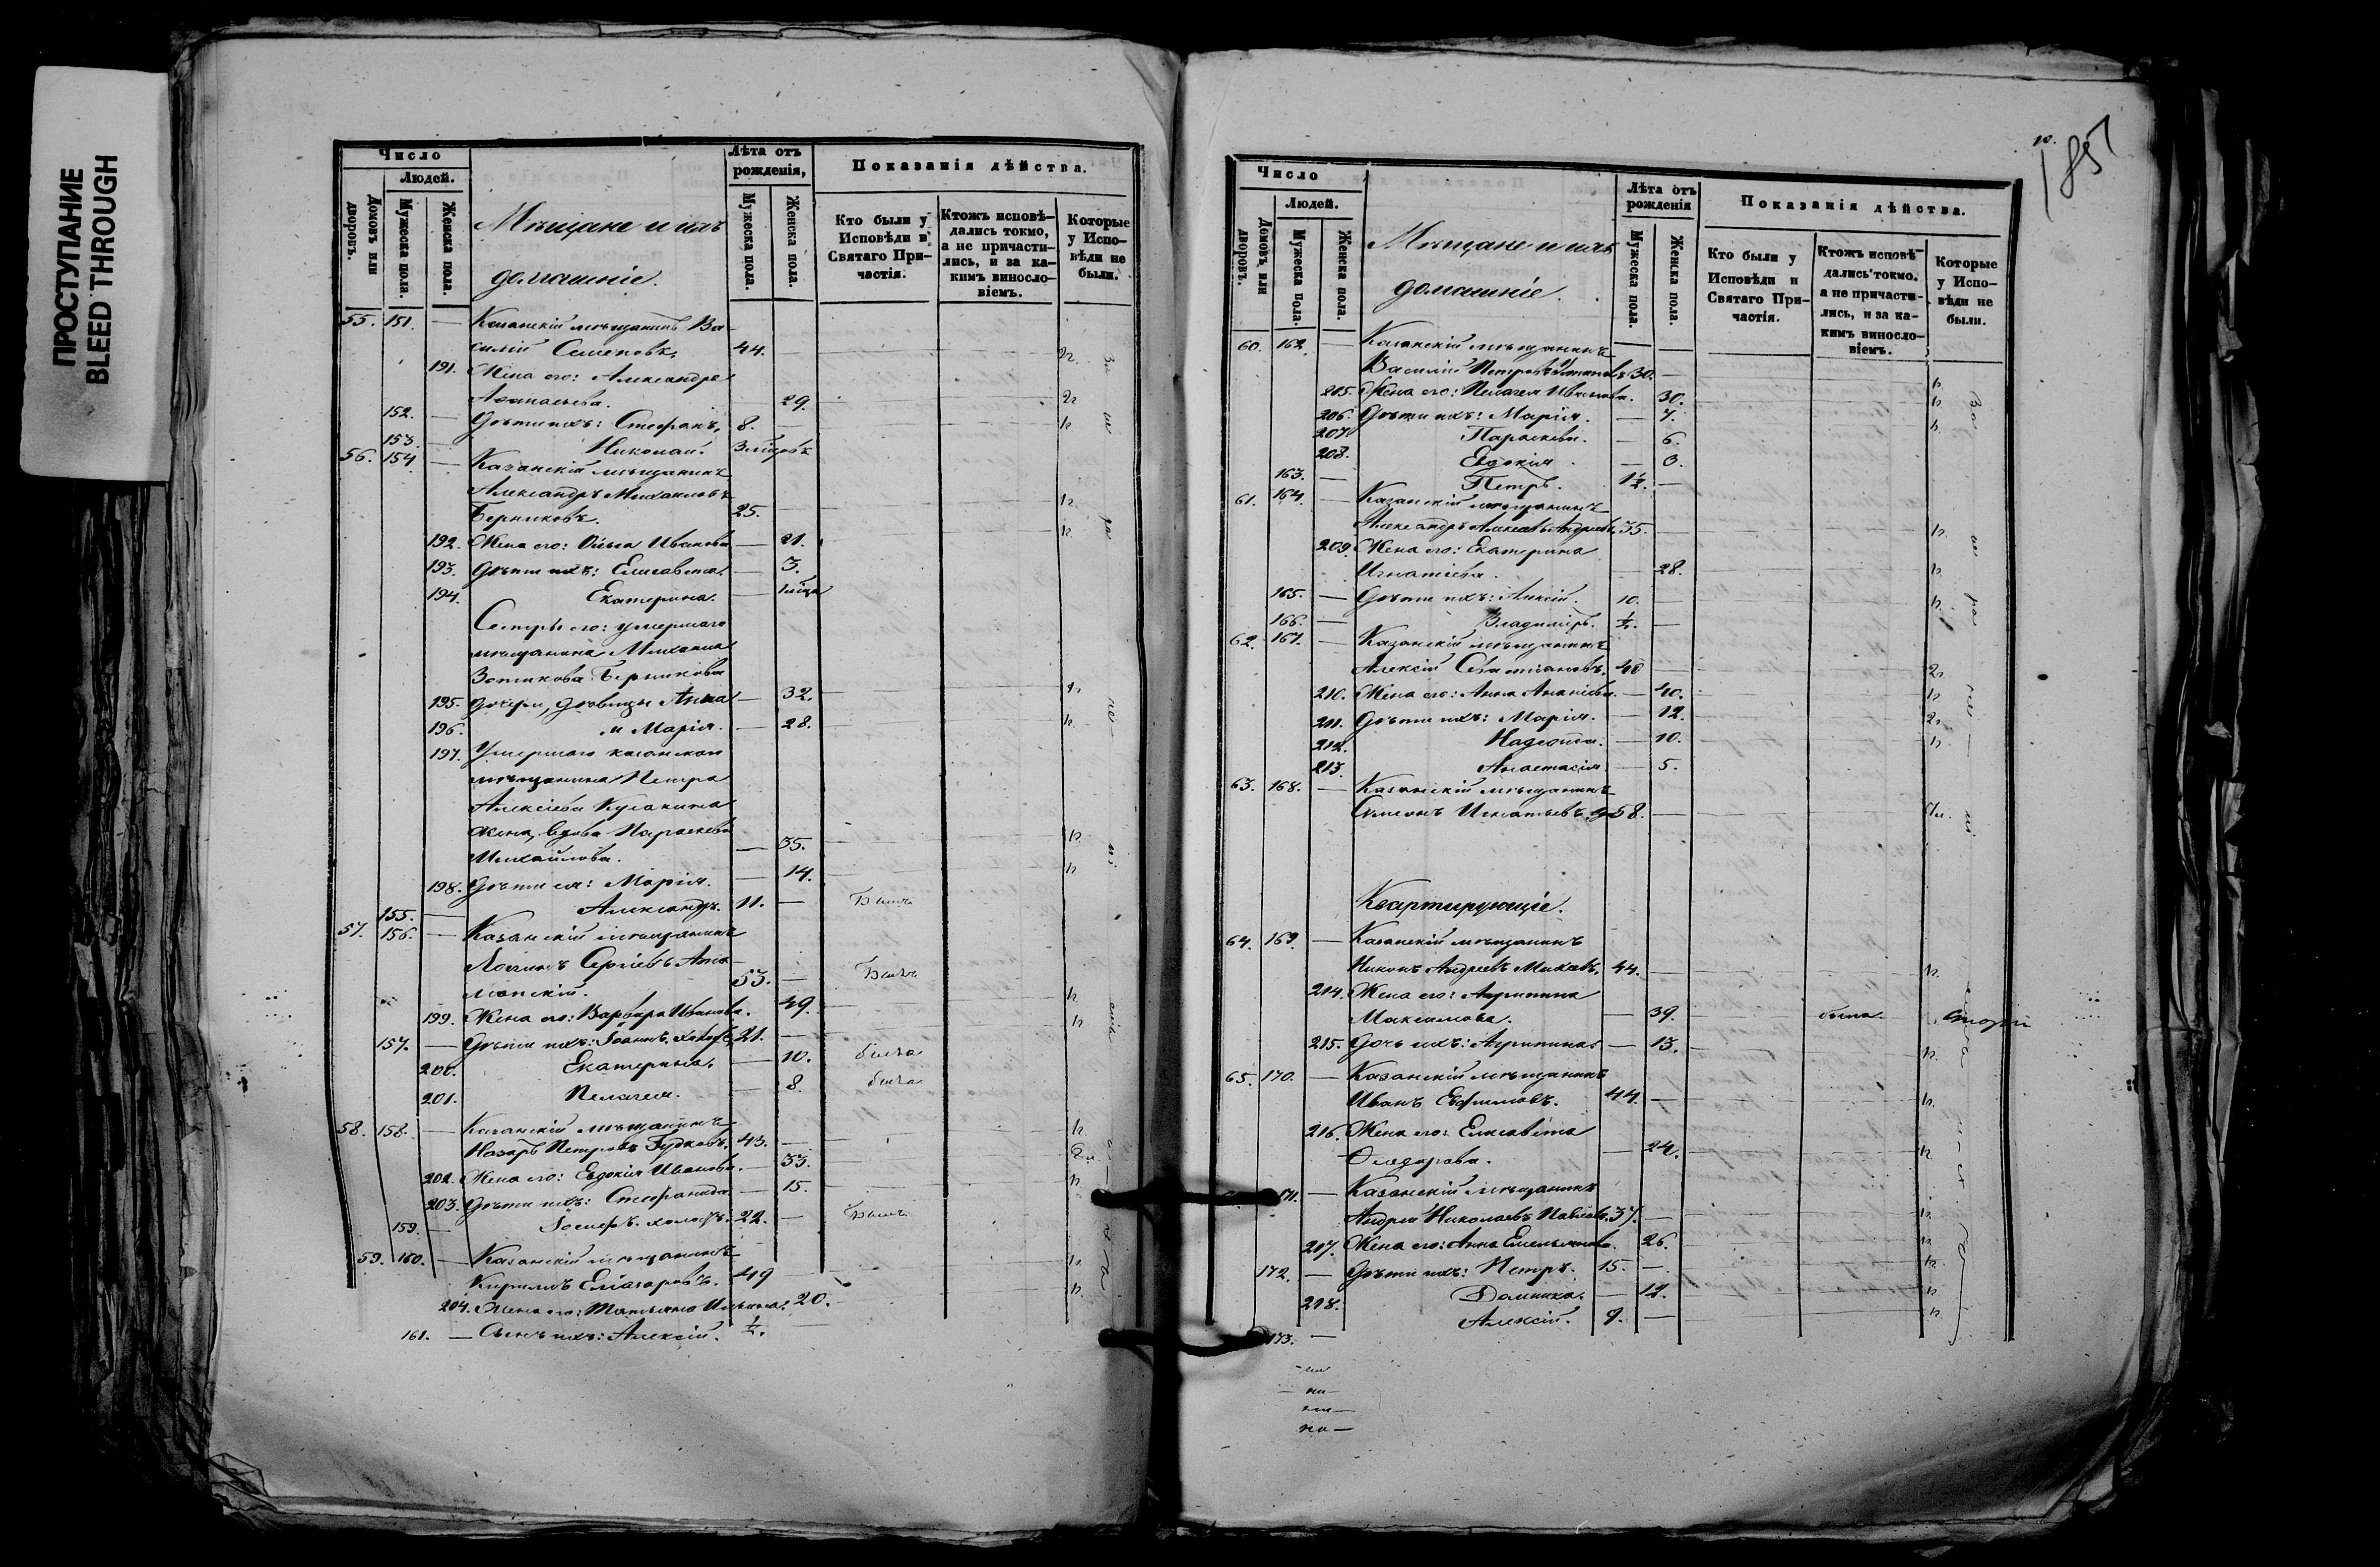 ПРОСТУПАНИЕ
BLEED THROUGH
Число
Людей.
Домовъ или дворовъ.
Мужеска пола.
Женска пола.
Мѣщане и ихъ
домашніе.
Лѣта отъ рожденія,
Мужеска пола.
Женска пола.
Показанія дѣйства.
Кто были у Исповѣди и Святаго Причастія.
Ктожъ исповѣдались токмо, а не причастились, и за какимъ винословіемъ.
Которые у Исповѣди не были.
55. 151. — Казанскій мѣщанинъ Ва-
силій Семеновъ. 44. —
191. Жена его: Александра
Аѳанасьева. — 29.
152. — Дѣти ихъ: Стефанъ. 8. —
153. — Николай.
56. 154. — Казанскій мѣщанинъ
Александръ Михаиловъ
Берниковъ. 25. —
192. Жена его: Ольга Иванова — 21.
193. Дѣти ихъ: Елисавета. — 3.
194. Екатерина. —
Сестры его: умершаго
мѣщанина Михаила
Берникова
195. дочери, дѣвицы Анна — 32.
196. и Марія. — 28.
197. Умершаго казанскаго
мѣщанина Петра
Алексіева Кулакина
жена, вдова Параскева
Михайлова. — 35.
198. Дѣти ея: Марія. — 14.
155. — Александръ. 11. — Былъ
57. 156. — Казанскій мѣщанинъ
Логинъ Сергіевъ
53. — Былъ
199. Жена его: Варвара Иванова. 49.
157. — Дѣти ихъ: Іоаннъ, холостъ, 21. —
200. Екатерина. — 10. была
201. Пелагея. — 8. была
58. 158. — Казанскій мѣщанинъ
Назаръ Петровъ Гудковъ. 43. —
202. Жена его: Евдокія Иванова. — 33.
203. Дѣти ихъ: Стефанида — 15.
159. — Іосифъ, холостъ. 22. — Былъ
59. 160. — Казанскій мѣщанинъ
Кириллъ Еліазаровъ. 49
204. Жена его: Татьяна Ильина. 20.
161. — Сынъ ихъ: Алексій. ½. —
185
Число
Людей.
Домовъ или дворовъ.
Мужеска пола.
Женска пола.
Мѣщане и ихъ
домашніе.
Лѣта отъ рожденія
Мужеска пола.
Женска пола.
Показанія дѣйства.
Кто были у Исповѣди и Святаго Причастія.
Ктожъ исповѣдались токмо. а не причастились, и за какимъ винословіемъ.
Которые у Исповѣди не были.
60. 162. — Казанскій мѣщанинъ
Василій Петровъ 30. —
205. Жена его: Пелагея Иванова. 30.
206. Дѣти ихъ: Марія. — 7.
207. Параскева. — 6.
208. Евдокія. — 3.
163. — Петръ. 1½. —
61. 164. — Казанскій мѣщанинъ
Александръ Алексіевъ Андреевъ, 35. —
209. Жена его: Екатерина
Игнатіева. — 28.
165. — Дѣти ихъ: Алексій. 10. —
166. — Владиміръ. ½. —
62. 167. — Казанскій мѣщанинъ
Алексій Севастіановъ. 40
210. Жена его: Анна Ананіева. — 40.
211. Дѣти ихъ: Марія. — 12.
212. Надежда. — 10.
213. Анастасія. — 5.
63. 168. — Казанскій мѣщанинъ
Симеонъ Игнатьевъ, 58. —
Квартирующіе.
64. 169. — Казанскій мѣщанинъ
Никонъ Андреевъ 44. —
214. Жена его: Агрипина
Максимова. — 39. была.
215. Дочь ихъ: Агрипина — 13.
65. 170. — Казанскій мѣщанинъ
Иванъ Евфимовъ. 44. —
216. Жена его: Елисавета
Ѳеодорова. — 24.
171. — Казанскій мѣщанинъ
Андрей Николаевъ Павловъ. 37. —
217. Жена его: Анна Емельянова. 26.
172. — Дѣти ихъ: Петръ. 15. —
218. Домника. — 12.
173. — Алексій. 9. —